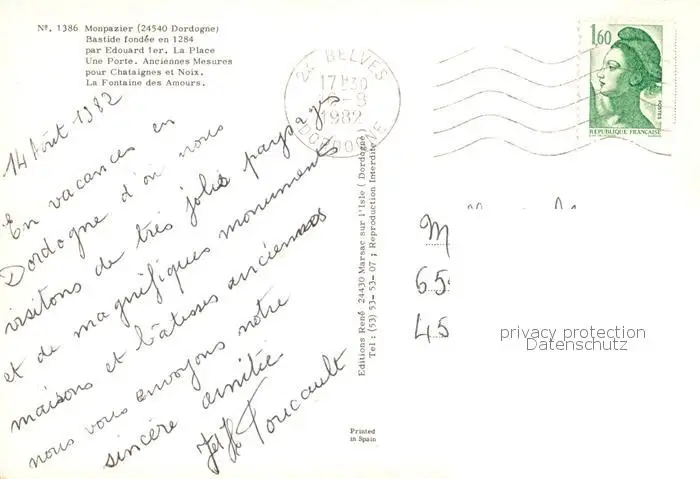 Nº. 1386 Monpazier (24540 Dordogne)
Bastide fondée en 1284
par Edouard 1er. La Place
Une Porte. Anciennes Mesures
pour Chataignes et Noix.
La Fontaine des Amours.
14 Août 1982
En vacances en
Dordogne d'où nous
visitons de très jolis paysages
et de magnifiques monuments
maisons et bâtisses anciennes
nous vous envoyons notre
sincère amitié
Foucault
24 BELVES
17H30
1982
DORDOGNE
Editions René 24430 Marsac sur l'Isle (Dordogne)
Tel : (53) 53-53-07 ; Reproduction Interdite
Printed
in Spain
1,60
POSTES
REPUBLIQUE FRANÇAISE
M
65
45
privacy protection
Datenschutz